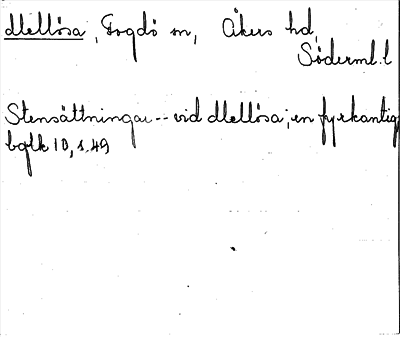 Mellösa, Fogdö sn, Åkers hd,
Söderml. l
Stensättningar -- vid Mellösa; en fyrkantig
bglk 10, s. 49